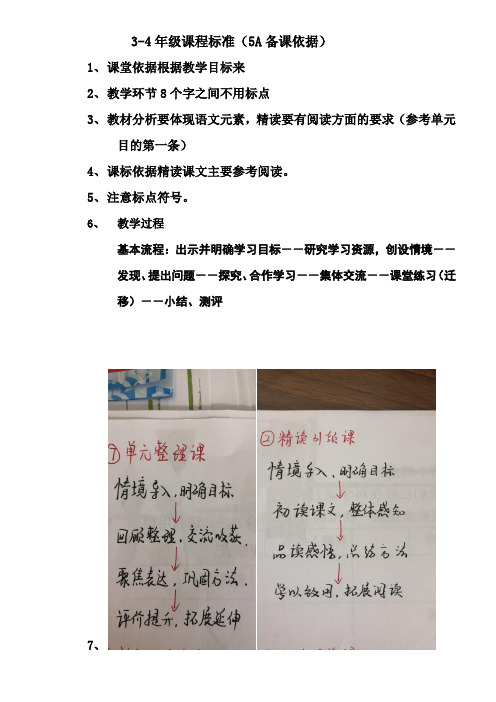 3-4年级课程标准（5A备课依据）
1、课堂依据根据教学目标来
2、教学环节8个字之间不用标点
3、教材分析要体现语文元素，精读要有阅读方面的要求（参考单元
目的第一条）
4、课标依据精读课文主要参考阅读。
5、注意标点符号。
6、 教学过程
基本流程：出示并明确学习目标——研究学习资源，创设情境——
发现、提出问题——探究、合作学习——集体交流——课堂练习（迁
移）——小结、测评
①单元整理课
情境导入，明确目标
回顾整理，交流收获.
聚焦表达，巩固方法.
评价提示，拓展延伸
②精读引领课
情境导入，明确目标
初读课文，整体感知
品读感悟，总结方法
学以致用，拓展阅读
7、